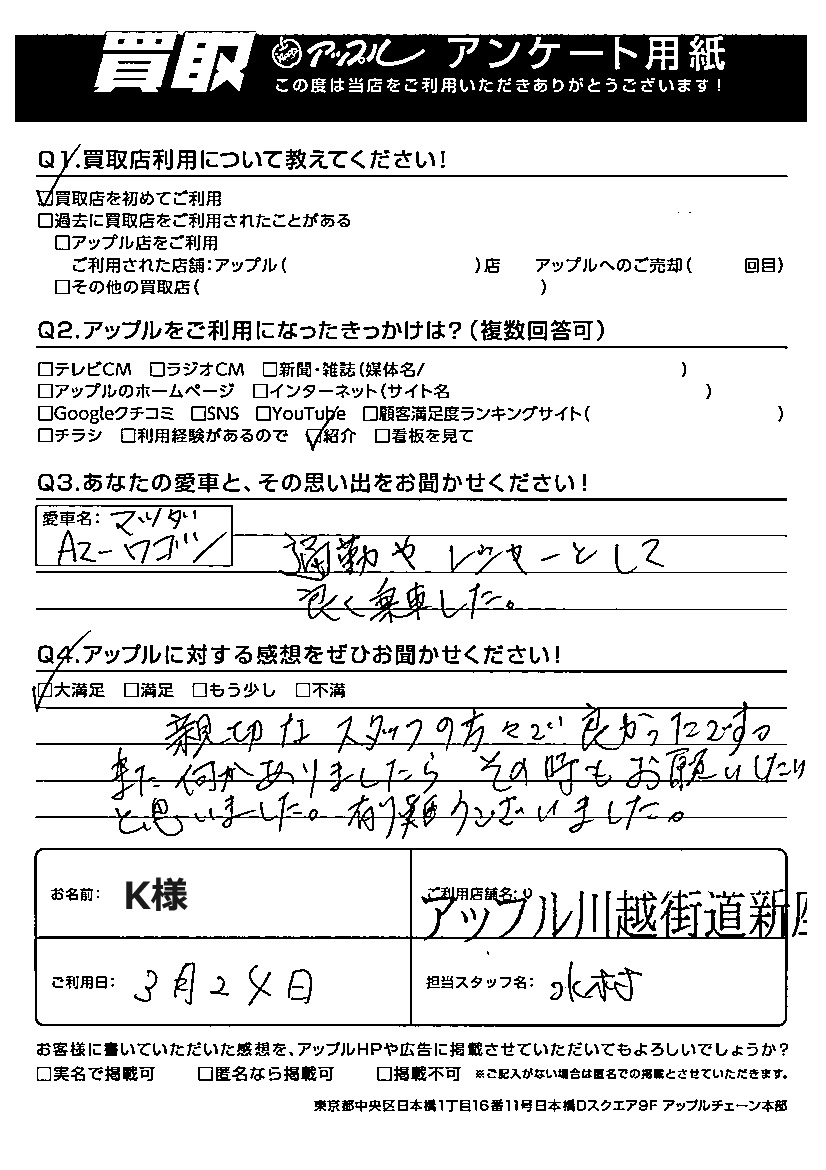 買取 アップル アンケート用紙
この度は当店をご利用いただきありがとうございます!
Q1.買取店利用について教えてください!
☑買取店を初めてご利用
□過去に買取店をご利用されたことがある
□アップル店をご利用
ご利用された店舗:アップル( )店 アップルへのご売却( 回目)
□その他の買取店( )
Q2.アップルをご利用になったきっかけは?(複数回答可)
□テレビCM □ラジオCM □新聞・雑誌(媒体名/ )
□アップルのホームページ □インターネット(サイト名 )
□Googleクチコミ □SNS □YouTube □顧客満足度ランキングサイト( )
□チラシ □利用経験があるので ☑紹介 □看板を見て
Q3.あなたの愛車と、その思い出をお聞かせください!
愛車名: マツダ
AZ-ワゴン
通勤や レジャーとして
良く乗車した。
Q4.アップルに対する感想をぜひお聞かせください!
☑大満足 □満足 □もう少し □不満
親切な スタッフの方々で 良かったです。
また 何かありましたら その時も お願いしたい
と思いました。有り難うございました。
お名前: K様
ご利用店舗名:
アップル川越街道新座
ご利用日: 3月24日
担当スタッフ名: 水村
お客様に書いていただいた感想を、アップルHPや広告に掲載させていただいてもよろしいでしょうか?
□実名で掲載可 □匿名なら掲載可 □掲載不可 ※ご記入がない場合は匿名での掲載とさせていただきます。
東京都中央区日本橋1丁目16番11号日本橋Dスクエア9F アップルチェーン本部